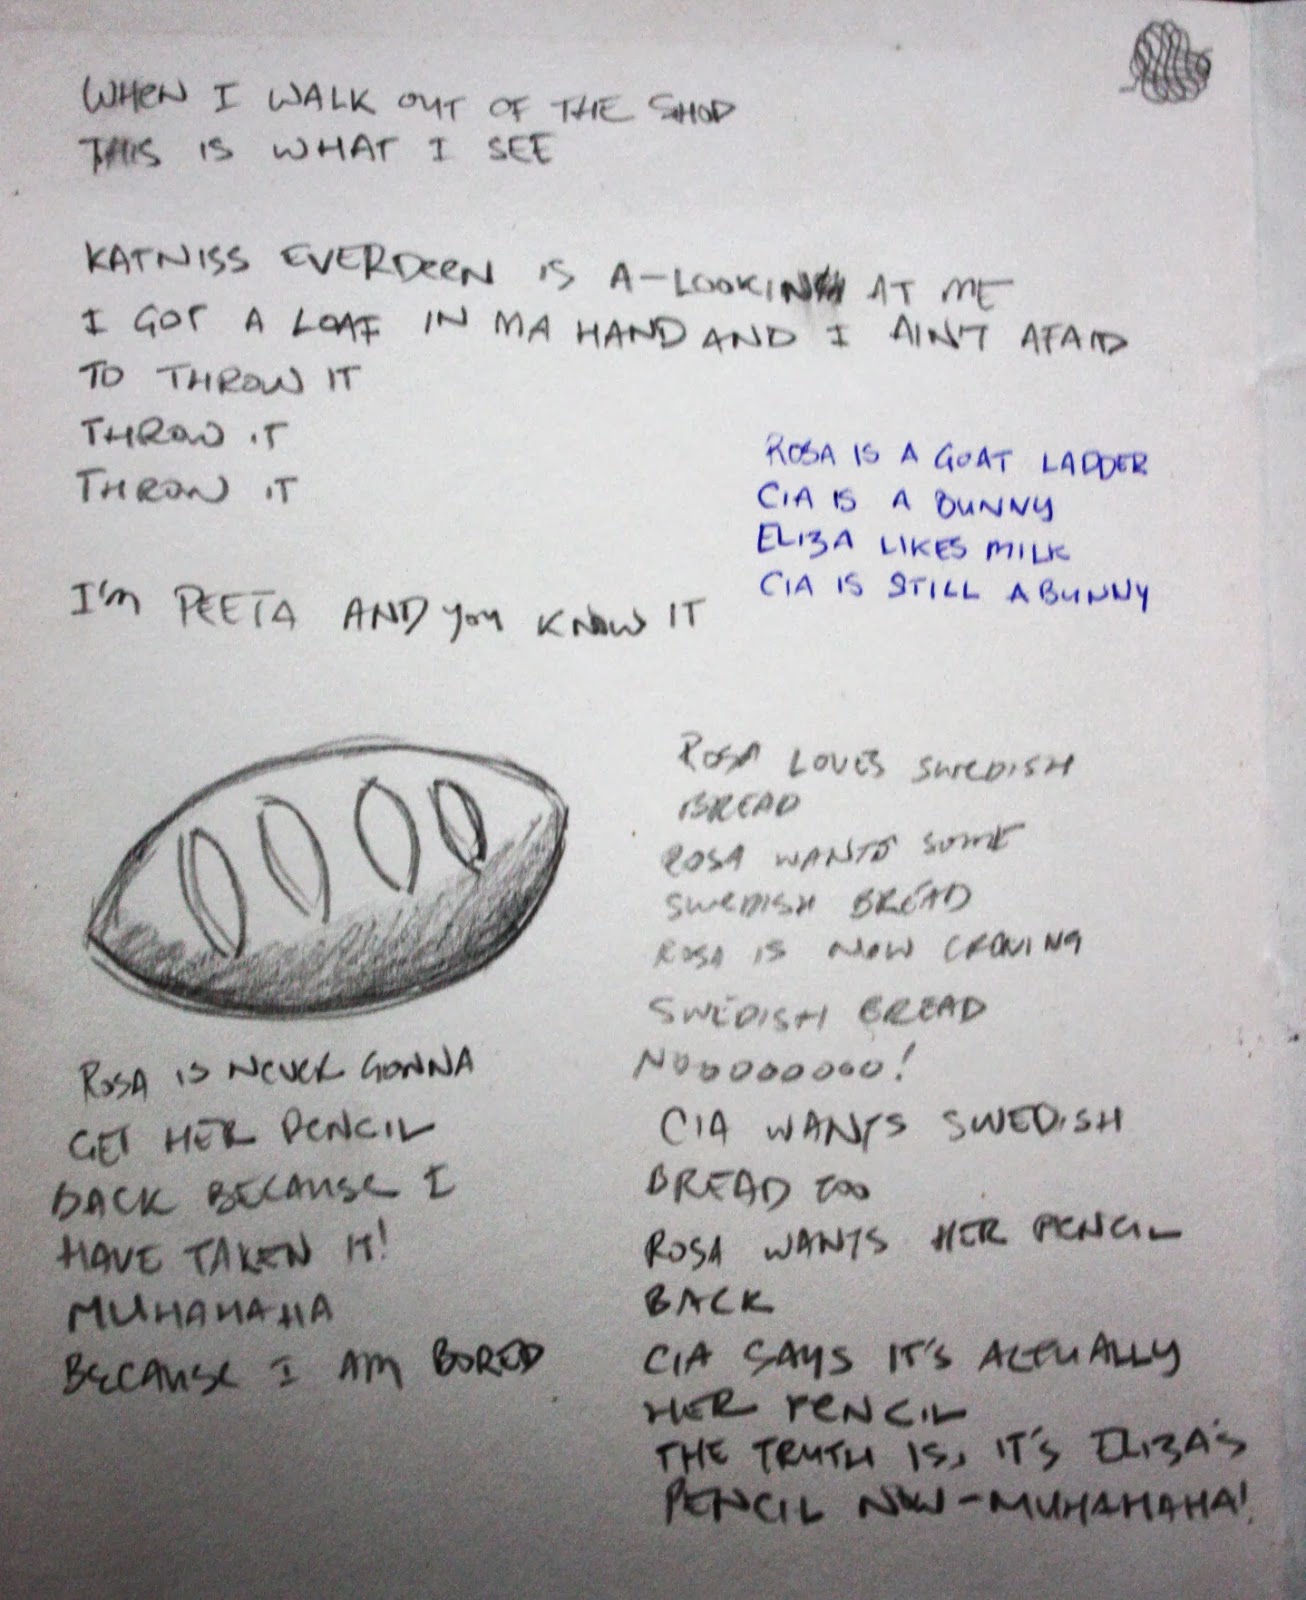 WHEN I WALK OUT OF THE SHOP
THIS IS WHAT I SEE
KATNISS EVERDEEN IS A-LOOKIN AT ME
I GOT A LOAF IN MA HAND AND I AIN'T AFAID
TO THROW IT
THROW IT
THROW IT
I'm PEETA AND you KNOW IT
ROSA IS A GOAT LADDER
CIA IS A BUNNY
ELIZA LIKES MILK
CIA IS STILL A BUNNY
ROSA IS NEVER GONNA
GET HER PENCIL
BACK BECAUSE I
HAVE TAKEN IT!
MUHAHAHA
BECAUSE I AM BORED
ROSA LOVES SWEDISH
BREAD
ROSA WANTS SOME
SWEDISH BREAD
ROSA IS NOW CRAVING
SWEDISH BREAD
NOOOOOOOO!
CIA WANTS SWEDISH
BREAD TOO
ROSA WANTS HER PENCIL
BACK
CIA SAYS IT'S ACTUALLY
HER PENCIL
THE TRUTH IS, IT'S ELIZA'S
PENCIL NOW - MUHAHAHA!